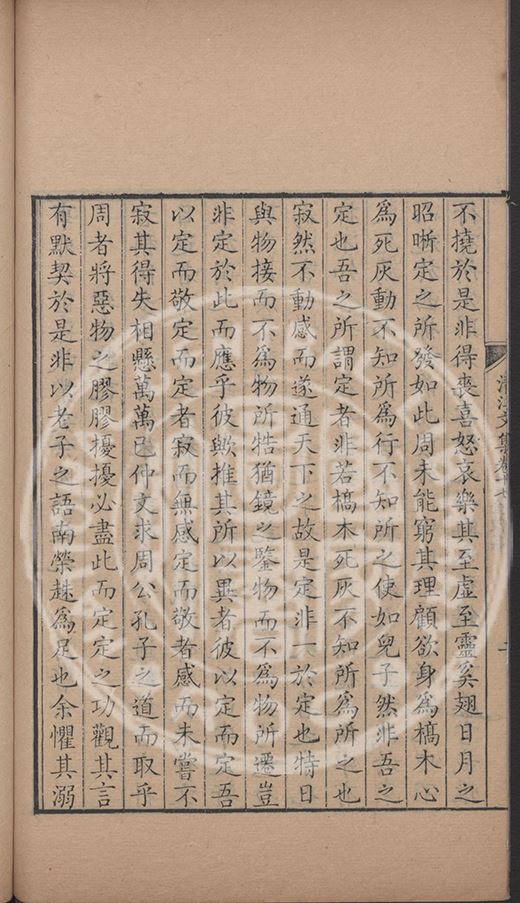 不撓於是非得喪喜怒哀樂其至虛至靈奚翅日月之
昭晣定之所發如此周未能窮其理顧欲身為槁木心
為死灰動不知所為行不知所之使如兒子然非吾之
定也吾之所謂定者非若槁木死灰不知所為所之也
寂然不動感而遂通天下之故是定非一於定也特日
與物接而不為物所牿猶鏡之鑒物而不為物所遷豈
非定於此而應乎彼歟推其所以異者彼以定而定吾
以定而敬定而定者寂而無感定而敬者感而未嘗不
寂其得失相懸萬萬已仲文求周公孔子之道而取乎
周者將惡物之膠膠擾擾必盡此而定定之功觀其言
有默契於是非以老子之語南榮趎為足也余懼其溺